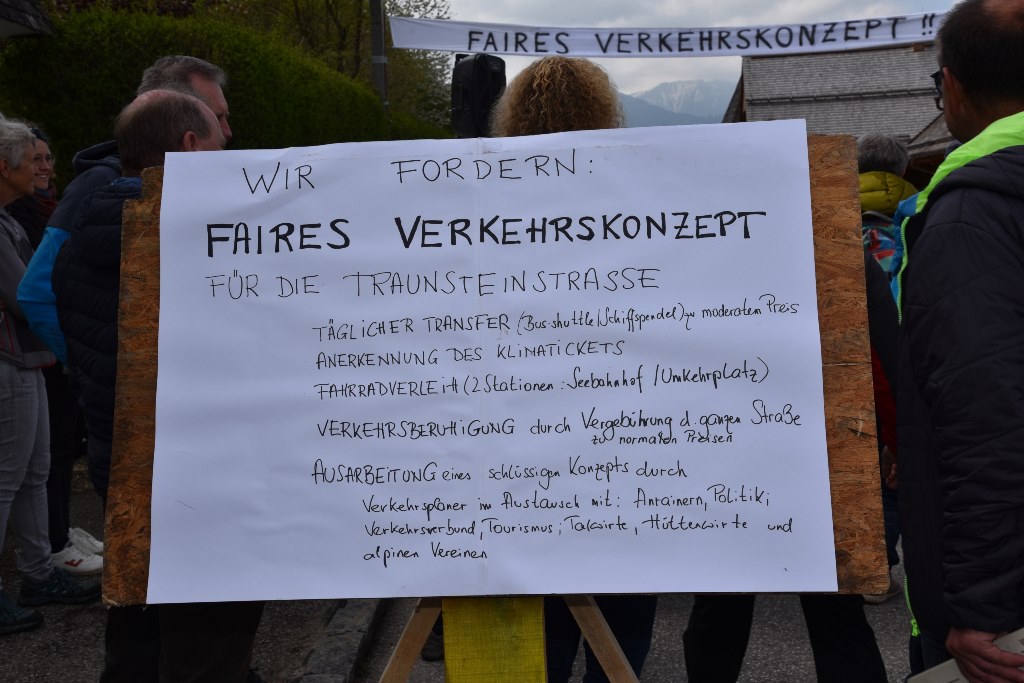 FAIRES VERKEHRSKONZEPT !!
WIR FORDERN:
FAIRES VERKEHRSKONZEPT
FÜR DIE TRAUNSTEINSTRASSE
TÄGLICHER TRANSFER (Bus-shuttle/Schiffspendel) zu moderatem Preis
ANERKENNUNG DES KLIMATICKETS
FAHRRADVERLEIH (2 Stationen: Seebahnhof / Umkehrplatz)
VERKEHRSBERUHIGUNG durch Vergebührung d. ganzen Straße
zu normalen Preisen
AUSARBEITUNG eines schlüssigen Konzepts durch
Verkehrsplaner im Austausch mit: Anrainern, Politik;
Verkehrsverbund, Tourismus; Talwirte, Hüttenwirte und
alpinen Vereinen